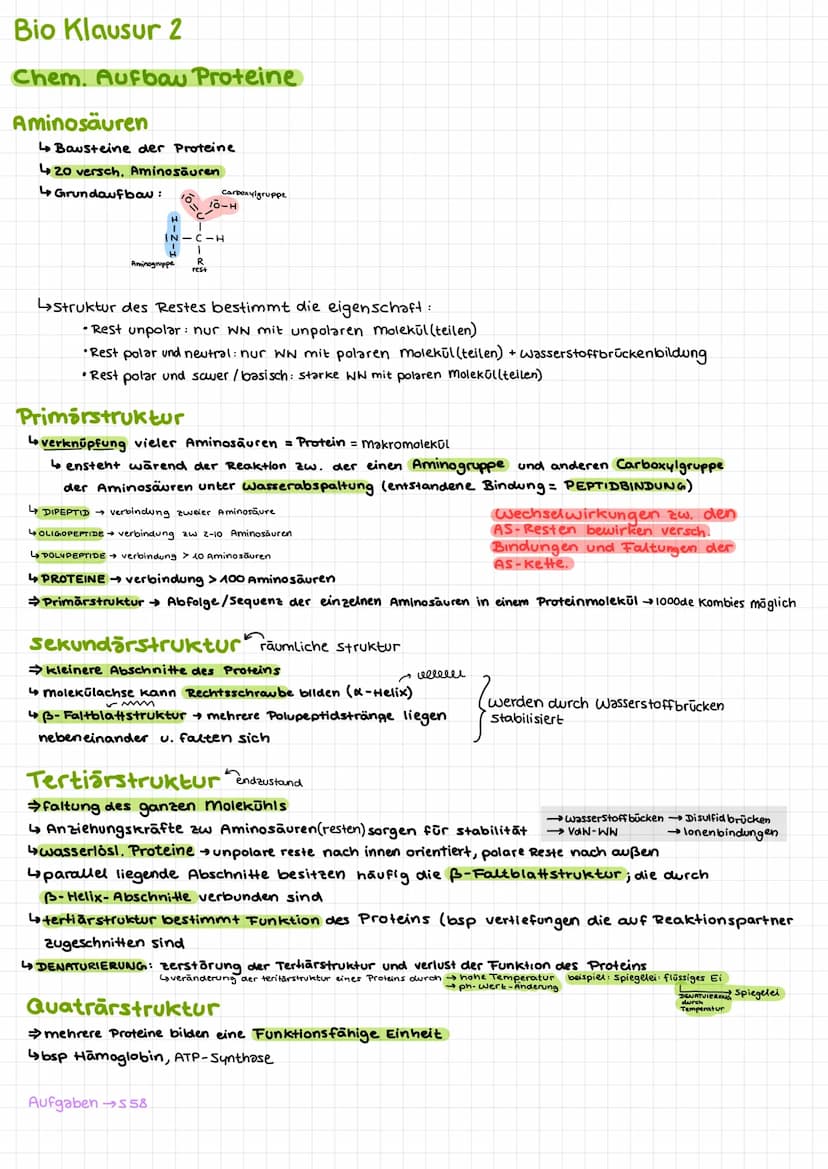 Bio Klausur 2
Chem. Aufbau Proteine
Aminosäuren
↳ Bausteine der Proteine
↳ 20 versch. Aminosäuren
↳ Grundaufbau:
Carboxylgruppe
O O-H
H C
IN-C-H
H R
Aminogruppe rest
↳ Struktur des Restes bestimmt die eigenschaft:
• Rest unpolar: nur WN mit unpolaren Molekül(teilen)
• Rest polar und neutral: nur WN mit polaren Molekül(teilen) + Wasserstoffbrückenbildung
• Rest polar und sauer / basisch: starke WN mit polaren Molekül(teilen)
Primärstruktur
↳ verknüpfung vieler Aminosäuren = Protein = Makromolekül
↳ ensteht wärend der Reaktion zw. der einen Aminogruppe und anderen Carboxylgruppe
der Aminosäuren unter Wasserabspaltung (entstandene Bindung = PEPTIDBINDUNG)
↳ DIPEPTID → verbindung zweier Aminosäure
↳ OLIGOPEPTIDE → verbindung zw 2-10 Aminosäuren
↳ POLYPEPTIDE → verbindung > 10 Aminosäuren
Wechselwirkungen zw. den
AS-Resten bewirken versch.
Bindungen und Faltungen der
AS-Kette.
↳ PROTEINE → verbindung > 100 Aminosäuren
⇒ Primärstruktur → Abfolge/Sequenz der einzelnen Aminosäuren in einem Proteinmolekül → 1000de Kombies möglich
Sekundärstruktur räumliche struktur
⇒ kleinere Abschnitte des Proteins
↳ molekülachse kann Rechtsschraube bilden (α-Helix)
↳ β-Faltblattstruktur → mehrere Polupeptidstränge liegen
nebeneinander u. falten sich
werden durch Wasserstoffbrücken
stabilisiert
Tertiärstruktur endzustand
⇒ Faltung des ganzen Molekühls
↳ Anziehungskräfte zw Aminosäuren(resten) sorgen für stabilität
→ Wasserstoffbücken → Disulfidbrücken
→ VdW-WN → Ionenbindungen
↳ wasserlösl. Proteine → unpolare reste nach innen orientiert, polare Reste nach außen
↳ parallel liegende Abschnitte besitzen häufig die β-Faltblattstruktur; die durch
β-Helix-Abschnitte verbunden sind
↳ tertiärstruktur bestimmt Funktion des Proteins (bsp vertiefungen die auf Reaktionspartner
zugeschnitten sind
↳ DENATURIERUNG: zerstörung der Tertiärstruktur und verlust der Funktion des Proteins
↳ veränderung der teritärstruktur eines Proteins durch → hohe Temperatur beispiel: Spiegelei: flüssiges Ei
→ ph-Wert-Änderung
DENATURIERUNG durch Temperatur → Spiegelei
Quaträrstruktur
⇒ mehrere Proteine bilden eine Funktionsfähige Einheit
↳ bsp Hämoglobin, ATP-Synthase
Aufgaben → S 58